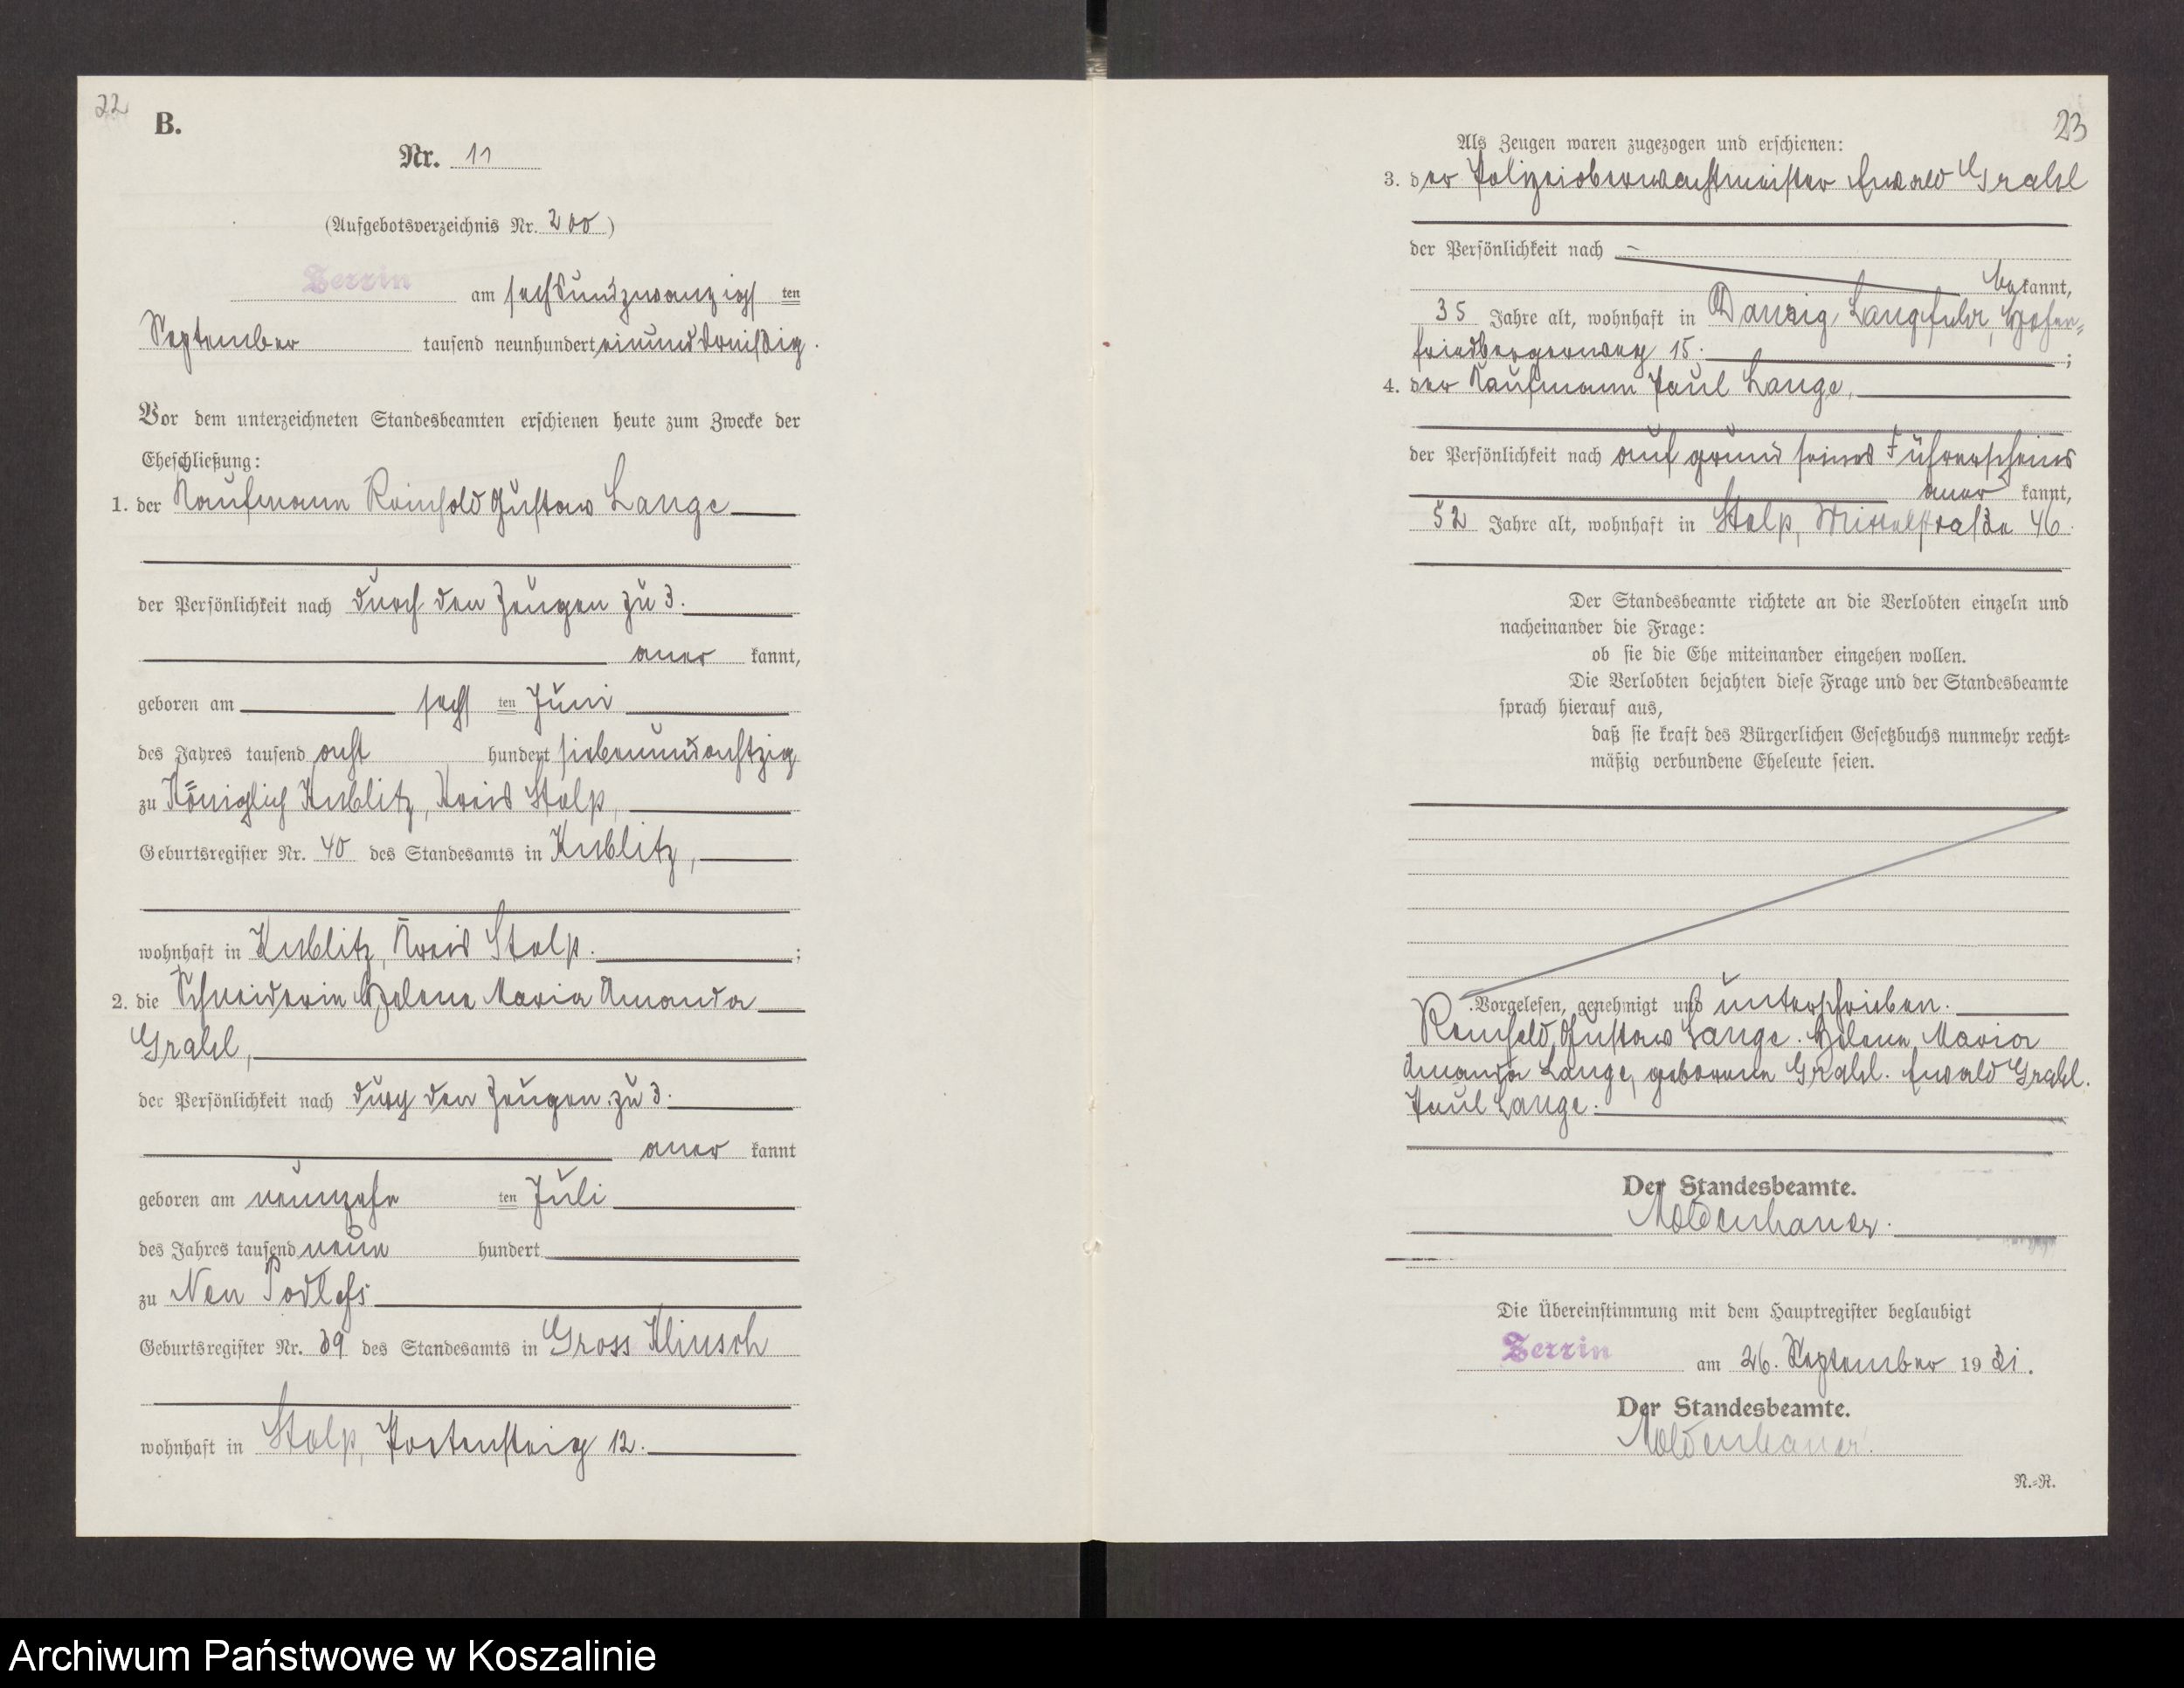 22
B.
Nr. 11
(Aufgebotsverzeichnis Nr. 200)
Zerrin am sechsundzwanzigs ten
September tausend neunhundert einunddreißig.
Vor dem unterzeichneten Standesbeamten erschienen heute zum Zwecke der
Eheschließung:
1. der Kaufmann Reinhold Gustav Lange
der Persönlichkeit nach durch den Zeugen zu 3.
aner kannt,
geboren am sechs ten Juni
des Jahres tausend acht hundert siebenundachtzig
zu Königlich Kublitz, Kreis Stolp,
Geburtsregister Nr. 40 des Standesamts in Kublitz,
wohnhaft in Kublitz, Kreis Stolp. ;
2. die Schneiderin Helene Maria Amanda
Grahl,
der Persönlichkeit nach durch den Zeugen zu 3.
aner kannt
geboren am neunzehn ten Juli
des Jahres tausend neun hundert
zu Neu Podleß
Geburtsregister Nr. 39 des Standesamts in Gross Klinsch
wohnhaft in Stolp, Portensteig 12.
23
Als Zeugen waren zugezogen und erschienen:
3. der Polizeioberwachtmeister Ewald Grahl
der Persönlichkeit nach –
be kannt,
35 Jahre alt, wohnhaft in Danzig Langfuhr, Hohen-
friedbergerweg 15. ;
4. der Kaufmann Paul Lange,
der Persönlichkeit nach auf grund seines Führerscheines
aner kannt,
52 Jahre alt, wohnhaft in Stolp, Mittelstraße 46.
Der Standesbeamte richtete an die Verlobten einzeln und
nacheinander die Frage:
ob sie die Ehe miteinander eingehen wollen.
Die Verlobten bejahten diese Frage und der Standesbeamte
sprach hierauf aus,
daß sie kraft des Bürgerlichen Gesetzbuchs nunmehr recht-
mäßig verbundene Eheleute seien.
Vorgelesen, genehmigt und unterschrieben.
Reinhold Gustav Lange. Helene Maria
Amanda Lange, geborene Grahl. Ewald Grahl.
Paul Lange.
Der Standesbeamte.
Moldenhauer.
Die Übereinstimmung mit dem Hauptregister beglaubigt
Zerrin am 26. September 19 31.
Der Standesbeamte.
Moldenhauer.
N.-R.
Archiwum Państwowe w Koszalinie